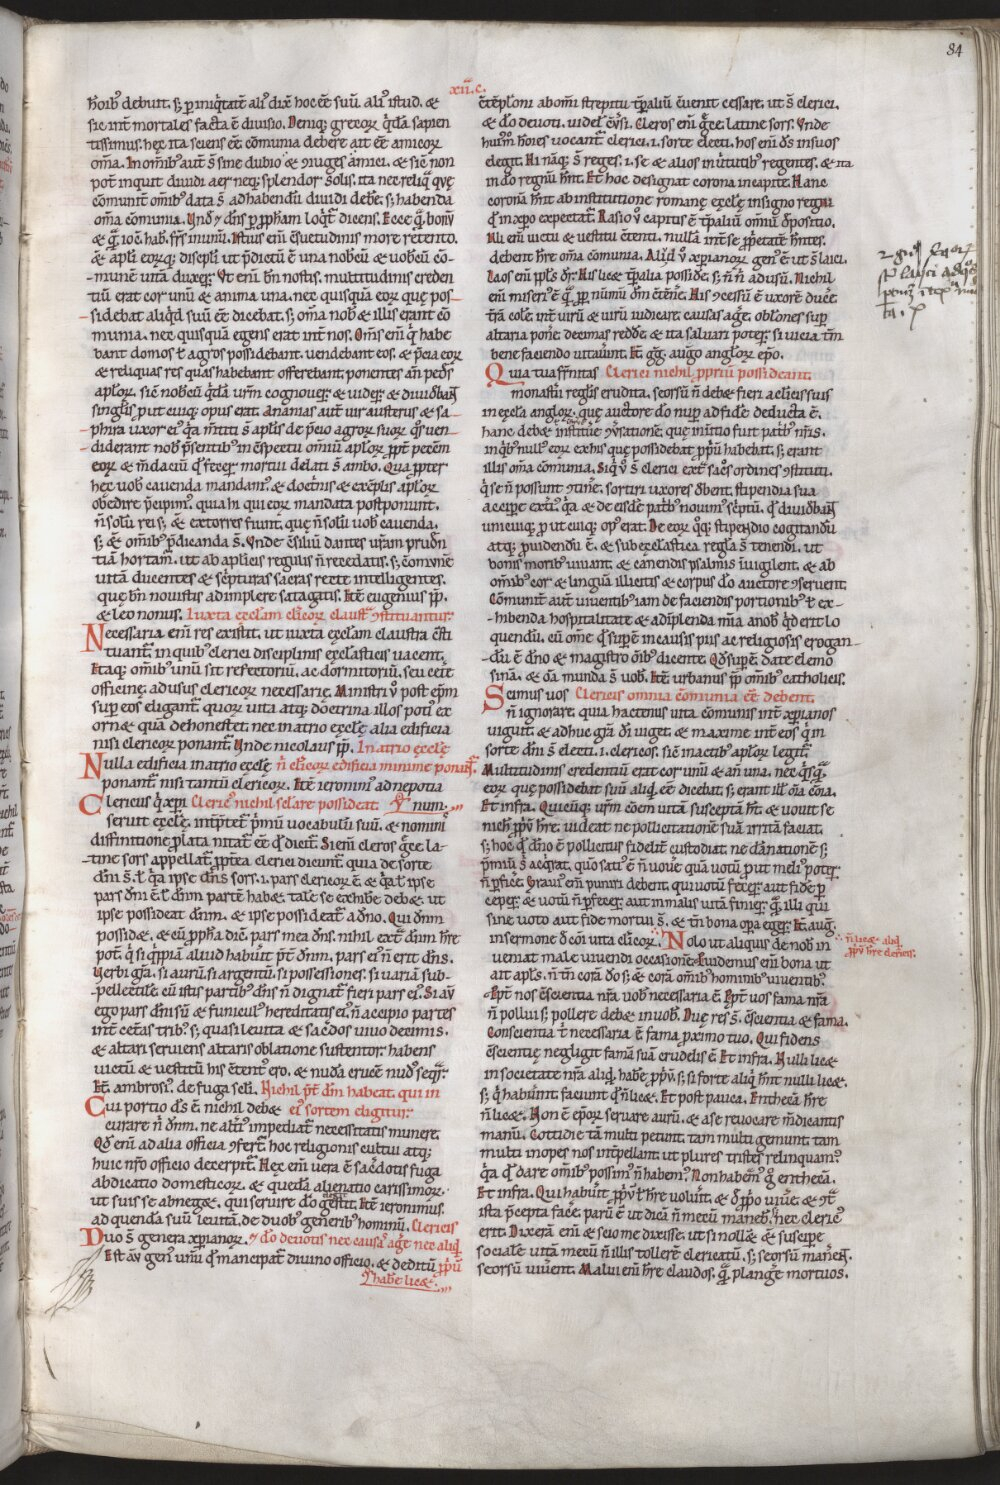 84
xii. c.
hoı̄ib; debuit. s; ꝑ iniq̇tatē aliꝰ dix̄ hoc eē suū. aliꝰ istud. &
sic int̄ mortales facta ē diuisio. Deniq; grecoꝝ q̇dā sapien
tissimus. hęc ita sciens eē. cōmunia debere ait eē amicoꝝ
om̄ia. In omib; aut̄ s̄ sine dubio & ꝯiuges amici. & sic̄ non
pot̄ inquit diuidi aer neq; splendor solis. ita nec reliq̄ quę
cōmunit̄ omib; data s̄ ad habendū diuidi debēt. s; habenda
om̄ia cōmunia. Vnd̄ & dn̄s ꝑ ꝓph̄am loq̇t̄ dicens. Ecce q̄ bonū
& q̄ ioc̄. hab. fr̄s in unū. Istius eni ꝯsuetudinis more retento.
& apl̄i eoꝝq; discipl̄i ut p̄dictū ē una nobcū & uobcū cō-
-munem uitā duxer̄. Vt eni bn̄ nostis. multitudinis creden
tiū erat cor unū & anima una. nec quisquā eoꝝ quę pos-
sidebat aliq̇d suū eē dicebat. s; om̄ia nob & illis erant cō
munia. nec quisquā egens erat int̄ nos. Om̄s eni q̇ habe
bant domos ł agros possidebant. uendebant eos. & p̄cia eoꝝ
& reliquas res quas habebant offerebant. ponentes an̄ pedes
apl̄oꝝ. sic̄ nobcū q̇dā ur̄m cognouer̄ & uider̄. & diuidebat̄
singul̄is put cuiq; opus erat. Ananias aut̄ uir austerus & sa-
phira uxor eiꝰ q̇a m̄titi s̄ apl̄is de p̄cio agroꝝ suoꝝ q̇s uen-
diderant nob p̄sentib; in ꝯspectu omniū apl̄oꝝ ꝓpt̄ pccm̄
eoꝝ & m̄daciū qd̄ fecer̄ mortui delati s̄ ambo. Quap̄pter
hęc uob cauenda mandamꝰ. & doct̄nis & exēplis apl̄oꝝ
obędire p̄cipimꝰ. quia hi qui eoꝝ mandata postponunt.
n̄ solū rei s; & extorres fiunt. quę n̄ solū uob cauenda.
s; & omib; p̄dicanda s̄. Vnde ꝯsiliū dantes ur̄am prudn̄
tiā hortam̄. ut ab apl̄icis regulis n̄ recedatis. s; cōmunē
uitā ducentes & sc̄pturas sacras recte intelligentes.
quę bn̄ nouistis adimplere satagatis. It̄ Eugenius p̄p.
& leo nonus. Iuxta ęcc̄lam cl̄icoꝝ claust̄ ꝯstituantur.
Necessaria eni res existit. ut iuxta ęcc̄lam claustra ꝯsti
tuant̄. in quib; clerici disciplinis ęcc̄lasticis uacent.
Itaq; omib; unū sit refectoriū. ac dormitoriū. seu cęt̄
officine. ad usus clericoꝝ necessarię. Ministri ꝟ post ep̄m
sup eos eligant̄. quoꝝ uita atq; doctrina illos potiꝰ ex
ornæ quā dehonestet. nec in atrio ęcc̄lę alia edificia
nisi clericoꝝ ponant̄. Vnde nicolaus p̄p. In atrio ęcc̄lę
Nulla edificia in atrio ęcc̄lę n̄ cl̄icoꝝ edificia minime ponant̄.
ponant̄ nisi tantū cl̄ericoꝝ. It̄ ieronimꝰ ad nepotia
Clericus q̇ xp̄i Clericꝰ nichil sel̄are possideat. num.
seruit ęcc̄lę. int̄p̄tet̄ p̄mū uocabulū suū. & nomin̄
diffinitione p̄lata nitat̄ eē qd̄ dicit̄. Si eni cleros gc̄e. la-
-tine sors appellat̄. ꝓpt̄ea clerici dicunt̄. quia de sorte
dn̄i s̄. ł q̇a ipse dn̄s sors. i. pars clericoꝝ ē. & q̇a ł ipse
pars dn̄i ē. ł dn̄m partē habę. tale se exhibe debę. ut
ipse possideat dn̄m. & ipse possideat̄ a dno. Qui dn̄m
possidę. & cū ꝓph̄a dic̄. pars mea dn̄s. nihil ext̄ dn̄m hr̄e
pot̄. q̇ si q̇ppiā aliud habuit p̄t dn̄m. pars eiꝰ n̄ erit dn̄s.
Verbi gr̄a. si aurū. si argentū. si possessiones. si uariā sup-
-pellectilē. cū istis partib; dn̄s n̄ dignat̄ fieri pars eiꝰ. Si aū
ego pars dn̄i sū & funiculꝰ hereditatis eiꝰ. n̄ accipio partes
int̄ cęt̄as tribꝰ. s; quasi leuita & sac̄dos uiuo decimis.
& altari seruiens altaris oblatione sustentor. habens
uictū & uestitū his ꝯtentꝰ ero. & nudā crucē nudꝰ seq̄r.
It̄ ambrosiꝰ. de fuga sc̄li. Nichil p̄t dn̄m habeat. qui in
Cui portio ds̄ ē nichil debę eiꝰ sortem eligitur.
curare n̄ dn̄m. ne altiꝰ impediat̄ necessitatis munere.
Qd̄ eni ad alia officia ꝯfert̄. hoc religionis cultui atq;
huic nr̄o officio decerpit̄. Hęc eni uera ē sac̄dotis fuga
abdicatio domesticoꝝ. & quędā alienatio carissimoꝝ.
ut suis se abnegæ. qui seruire dō gestit. It̄ ieronimus.
ad quendā suū leuitā. de duob; generib; hominū. Clericis
Duo s̄ genera xp̄ianoꝝ. & dō deuotis nec causaꝰ aḡe nec aliq̇d
Est aū genꝰ unū qd̄ mancipat̄ diuino officio. & deditū ꝓpriū
habe licet.
ꝯtēpl̄oni ab om̄i strepitu tp̄aliū ꝯuenit cessare. ut s̄ clerici.
& dō deuoti. uidel̄ ꝯuersi. Cleros eni gc̄e. latine sors. Vnde
huiꝰm̄ hoı̄es uocant̄ clerici. i. sorte electi. hos eni ds̄ in suos
elegit. Hi nāq; s̄ reges. i. se & alios in uirtutib; regentes. & ita
in dō regnū hn̄t. Et hoc designat corona in capite. Hanc
coronā hn̄t ab institutione romanę ęcc̄lę in signo regni
qd̄ in xp̄o expectat̄. Rasio ꝟ capitis ē tp̄aliū omniū d̄positio.
Illi eni uictu & uestitu ꝯtenti. nullā int̄ se ꝓp̄etatē hn̄tes.
debent hr̄e om̄ia cōmunia. Aliud ꝟ xp̄ianoꝝ genꝰ ē ut s̄ laici.
Laos eni ppl̄s dr̄. His licę tp̄alia possidē. s; n̄ n̄ ad usū. Nichil
eni miseriꝰ ē q̄ ꝓp nūmū dm̄ ꝯtēnē. His ꝯcessū ē uxorē ducē.
t̄rā colē. int̄ uirū & uirū iudicare. causas agē. obl̄ones sup
altaria ponē. decimas reddē. & ita saluari poter̄. si uicia tm̄
bene faciendo uitauint. It̄ gg̃. augꝰ angloꝝ ep̄o.
Quia tua fr̄nitas Clerici nichil ꝓpriū possideant.
monastii regl̄is erudita. seorsū n̄ debæ fieri a clericis suis
in ęcc̄la angloꝝ. quę auctore dō nup ad fidē deducta ē.
hanc debæ instituē ꝯuersationē. quę initio fuit patrib; nr̄is.
in q̇b; nullꝰ eoꝝ ex his quę possidebat ꝓpriū habebat. s; erant
illis om̄ia cōmunia. Siq̇ ꝟ s̄ clerici ext̄ sac̄os ordines ꝯstituti.
q̇ se n̄ possunt ꝯtinē. sortiri uxores dn̄t. stipendia sua
accipe ext̄iꝰ. q̇a & de eisdē patrib; nouimꝰ sc̄ptū. qd̄ diuidebat̄
unicuiq; put cuiq; opꝰ erat. De eoꝝ q̇q; stipendio cogitandū
atq; ꝓuidendū ē. & sub ęcc̄lastica regl̄a s̄ tenendi. ut
bonis moribꝰ uiuant. & canendis psalmis inuigilent. & ab
omib; eoꝝ & linguā illicitis & corpus dō auctore ꝯseruent.
Cōmunit̄ aut̄ uiuentib; iam de faciendis portionib; ł ex-
-hibenda hospitalitate & adiplenda mīa a nob q̇d erit lo
quendū. cū om̄e qd̄ supē in causis piis ac religiosis erogan-
-dū ē dn̄o & magistro oı̄b; dicente. Qd̄ supē. date elemo
sinā. & oı̄a munda s̄ uob. It̄ urbanus p̄p omib; catholicis.
Scimus uos Clericis omnia cōmunia eē debent.
n̄ ignorare. quia hactenus uita cōmunis int̄ xp̄ianos
uiguit. & adhuc gr̄a dī uiget. & maxime int̄ eos q̇ in
sorte dn̄i s̄ electi. i. clericos. sic̄ in actib; apl̄oꝝ legit̄.
Multitudinis credentiū erat cor unū & an̄a una. nec q̇sq̄
eoꝝ quę possidebat suū aliq̇d eē dicebat. s; erant ill̄ oı̄a cōīa.
Et infra. Quicūq; ur̄m cōem uitā susceptā hn̄t. & uouit se
nich̄ ꝓpū hr̄e. uideat ne pollicitationē suā irritā faciat.
s; hoc qd̄ dn̄o ē pollicitus fidelit̄ custodiat. ne dānationē s;
p̄miū s̄ acq̇rat. quō satiꝰ ē n̄ uouē. quā uotū put meliꝰ potest
n̄ ꝑficē. Grauiꝰ eni puniri debent. qui uotū fecer̄ aut fidē p
ceper̄. & uotū n̄ ꝑfecer̄ aut in malis uitā finier̄. q̄ illi qui
sine uoto aut fide mortui s̄. & tn̄ bona opa eger̄. It̄ aug̃.
in sermone d̄ cōi uita cl̄icoꝝ. Nolo ut aliquis de nob in
n̄ licæ aliq̇d
ꝓpū hr̄e clericis.
ueniat male uiuendi occasionē. Prouidemus eni bona ut
ait apl̄s. n̄ tm̄ corā dō. s; & corā omib; hominib; uiuentib;.
Ꝓpt̄ nos ꝯscientia nr̄a uob necessaria ē. Ꝓpt̄ uos fama nr̄a
n̄ pollui s; pollere debę in uob. Duę res s̄. ꝯscientia & fama.
Conscientia ē necessaria ē. fama ꝓximo tuo. Qui fidens
ꝯscientię negligit famā suā crudelis ē. Et infra. Nulli licæ
in societate nr̄a aliq̇d habē ꝓpū. s; si forte aliq̇ hn̄t nulli licæ.
s; q̇ habuint. faciunt qd̄ n̄ licæ. Et post pauca. Enthecā hr̄e
n̄ licæ. Non ē ep̄oꝝ seruare aurū. & a se reuocare mēdicantis
manū. Cottidie tā multi petunt. tam multi gemunt. tam
multi inopes nos int̄pellant. ut plures tristes relinquamꝰ.
q̇a qd̄ dare omib; possimꝰ n̄ habemꝰ. Non habemꝰ ꝟ enthecā.
Et infra. Qui habuit ꝓpū ł hr̄e uoluit. & d̄ ꝓpo uiuē. & ꝯt̄
ista p̄cepta facē. parū ē ut dicā n̄ mecū manebit. s; nec clericꝰ
erit. Dixerā eni & scio me dixisse. ut si nollēt & suscipe
sociale uitā mecū. n̄ illis tollerē clericatū. s; seorsū manēt.
seorsū uiuent. Malui eni hr̄e claudos. q̄ plangē mortuos.